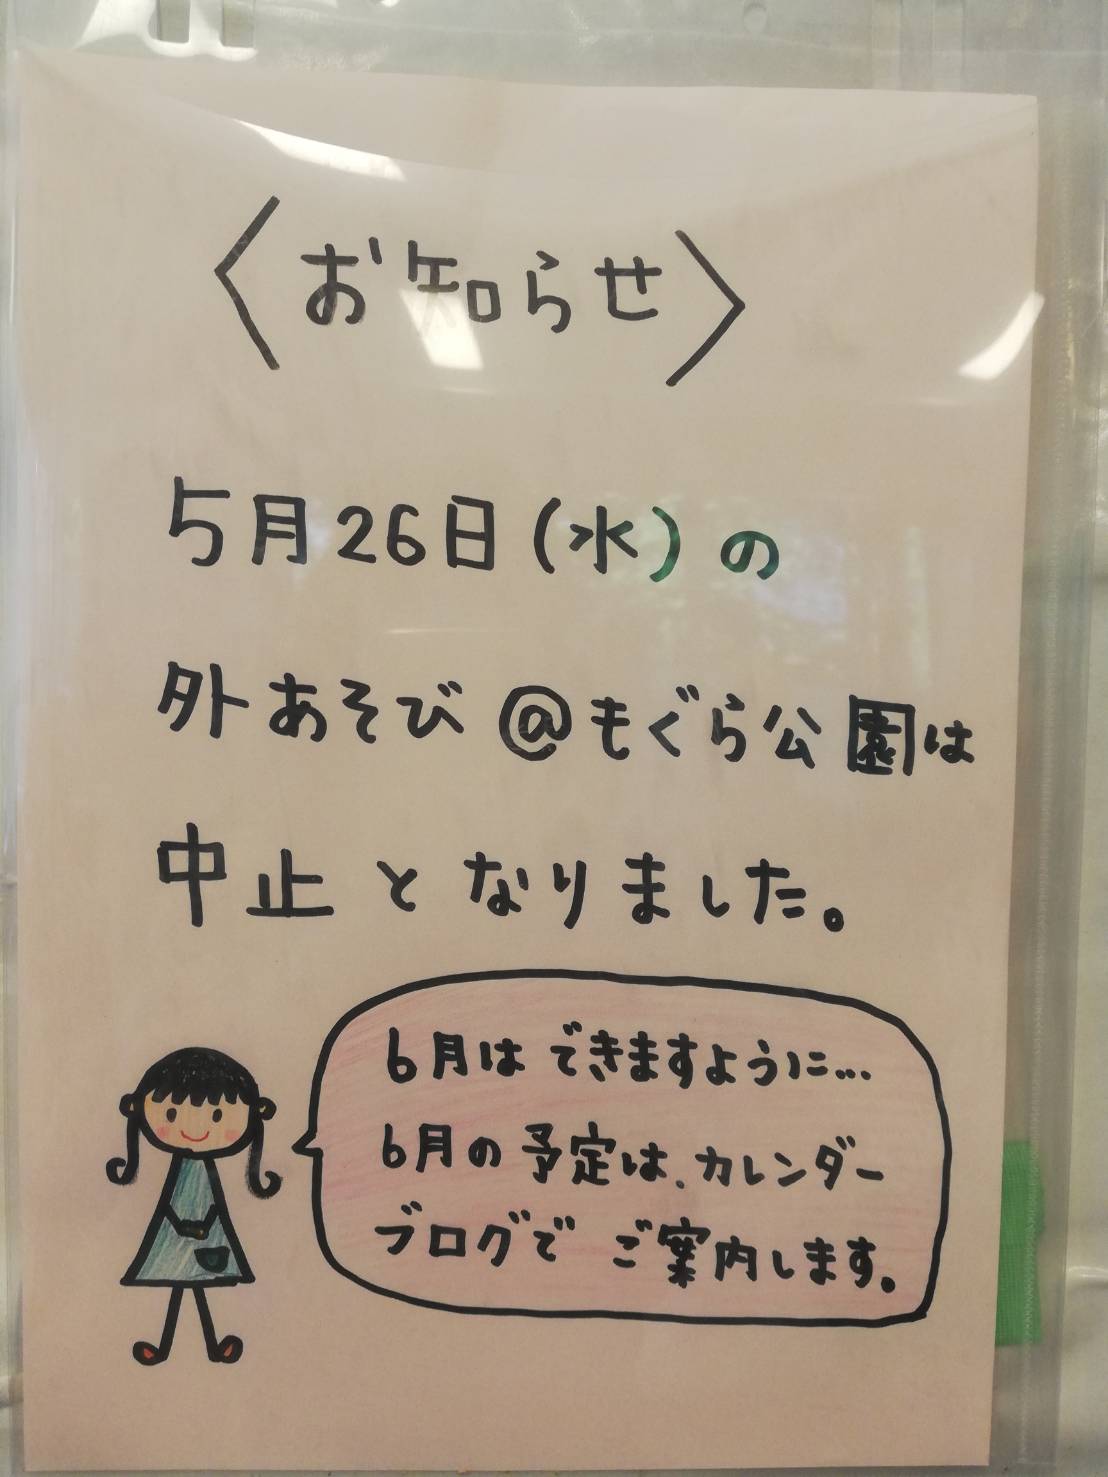 〈お知らせ〉
5月26日(水)の
外あそび@もぐら公園は
中止となりました。
6月はできますように...
6月の予定は、カレンダー
ブログでご案内します。